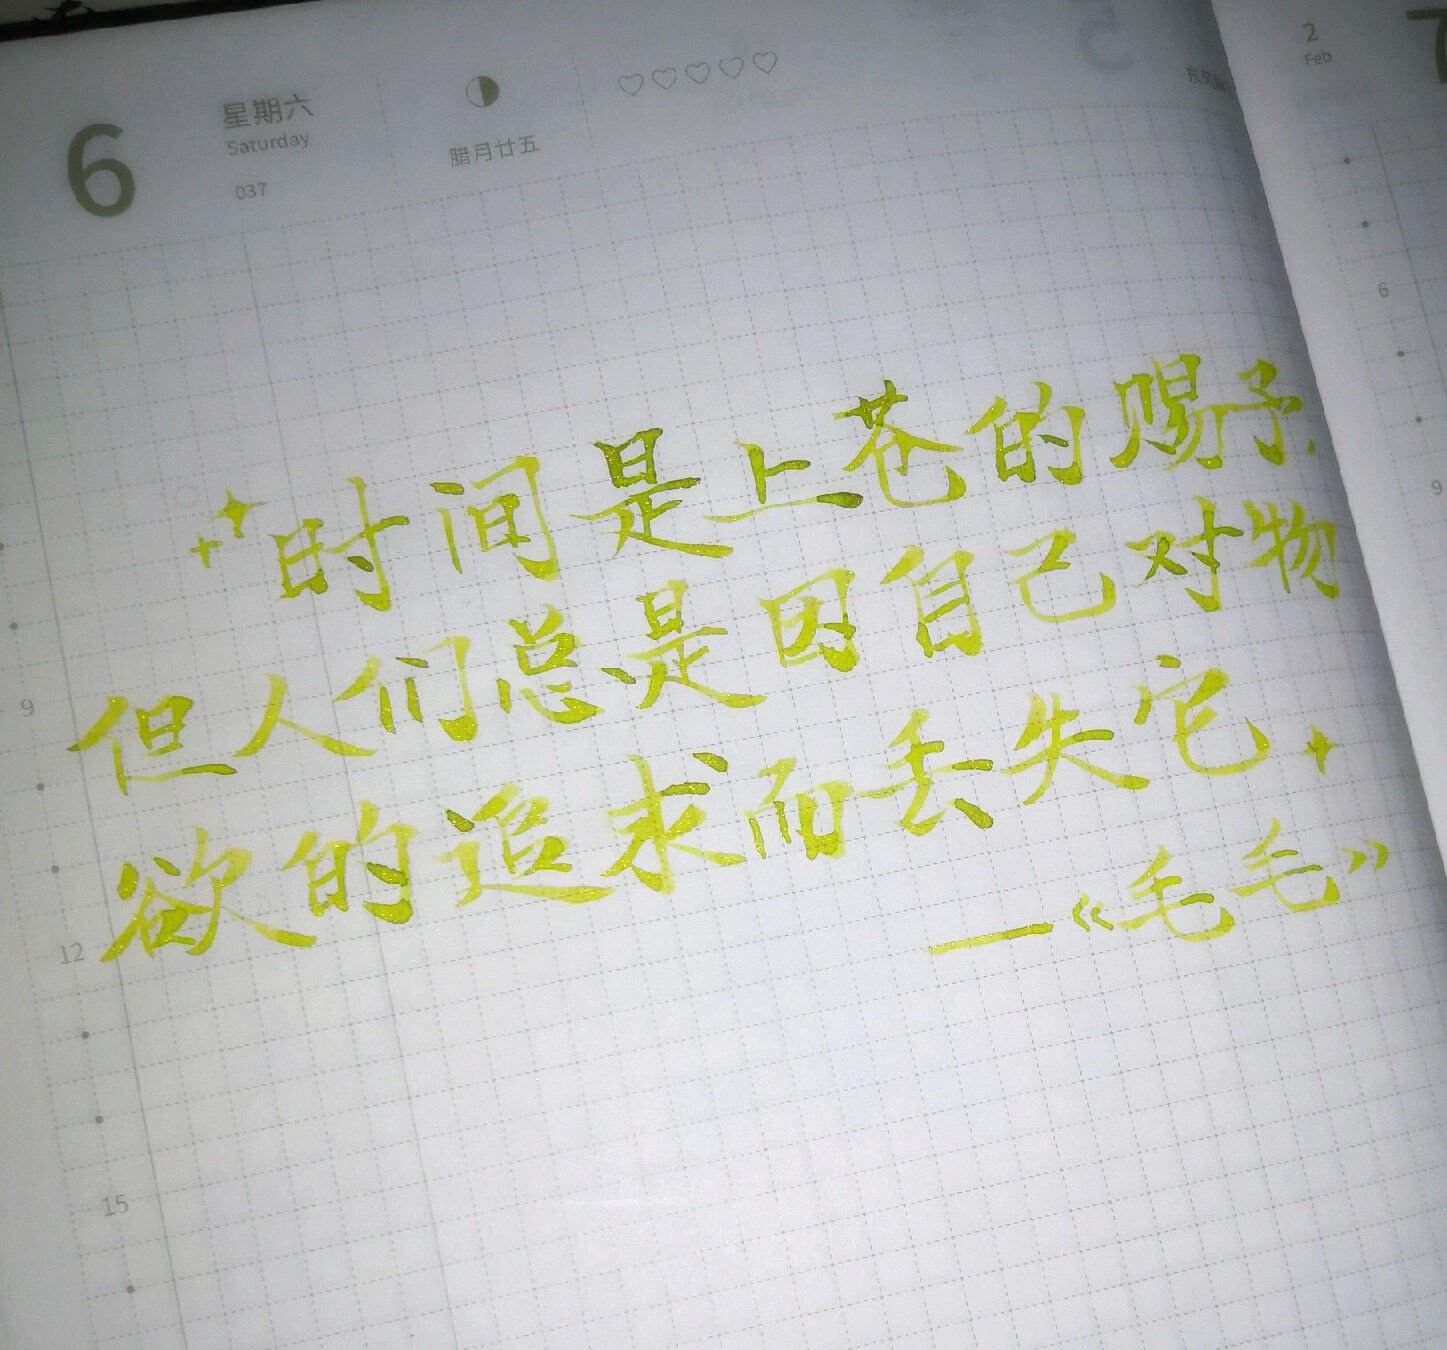 6
星期六
Saturday
037
腊月廿五
2
Feb
7
时间是上苍的赐予.
但人们总是因自己对物
欲的追求而丢失它
—《毛毛》
9
12
15
6
9